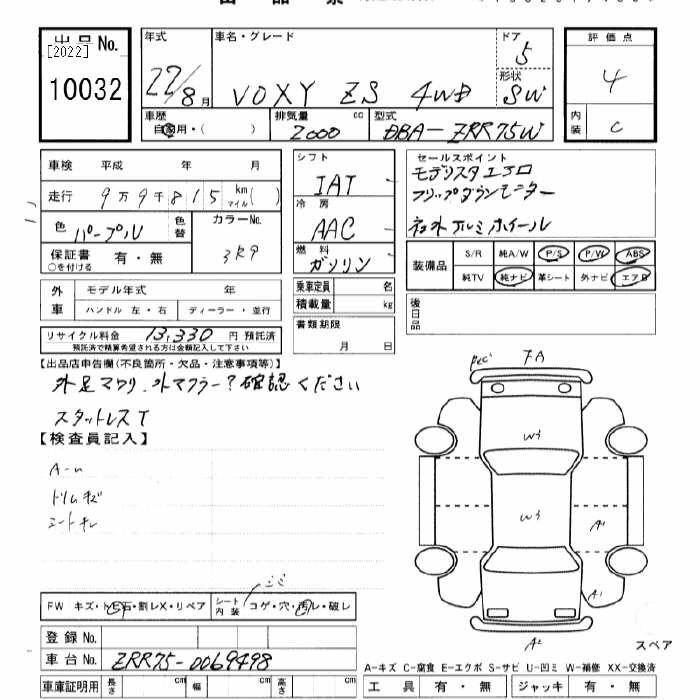 出品票
出品No.
[2022]
10032
年式
22/8月
車名・グレード
VOXY ZS 4WD
ドア
5
形状
SW
評価点
4
内装
C
車歴
自家用・( )
排気量
2000 cc
型式
DBA-ZRR75W
車検 平成 年 月
走行 9万9千815 km マイル( )
色 パープル 色替
カラーNo.
3R9
保証書 有・無
○を付ける
シフト
IAT
冷房
AAC
燃料
ガソリン
セールスポイント
モデリスタエアロ
フリップダウンモニター
社外アルミホイール
装備品
S/R 純A/W P/S P/W ABS
純TV 純ナビ 革シート 外ナビ エアB
外車
モデル年式 年
ハンドル 左・右 ディーラー・並行
乗車定員 名
積載量 kg
後日品
リサイクル料金 13,330 円 預託済
預託済で精算希望される方は金額記入して下さい
書類期限
月 日
【出品店申告欄(不良箇所・欠品・注意事項等)】
外足マワリ、外マフラー?確認ください
スタットレスT
【検査員記入】
トリムキズ
シートキレ
FA
W3
W3
A1
A1
A2
スペア
FW キズ・トビ石・割レX・リペア
シート内装 コゲ・穴・汚レ・破レ
登録No.
車台No. ZRR75-0069498
A-キズ C-腐食 E-エクボ S-サビ U-凹ミ W-補修 XX-交換済
車庫証明用 長さ cm 幅 cm 高さ cm
工具 有・無 ジャッキ 有・無